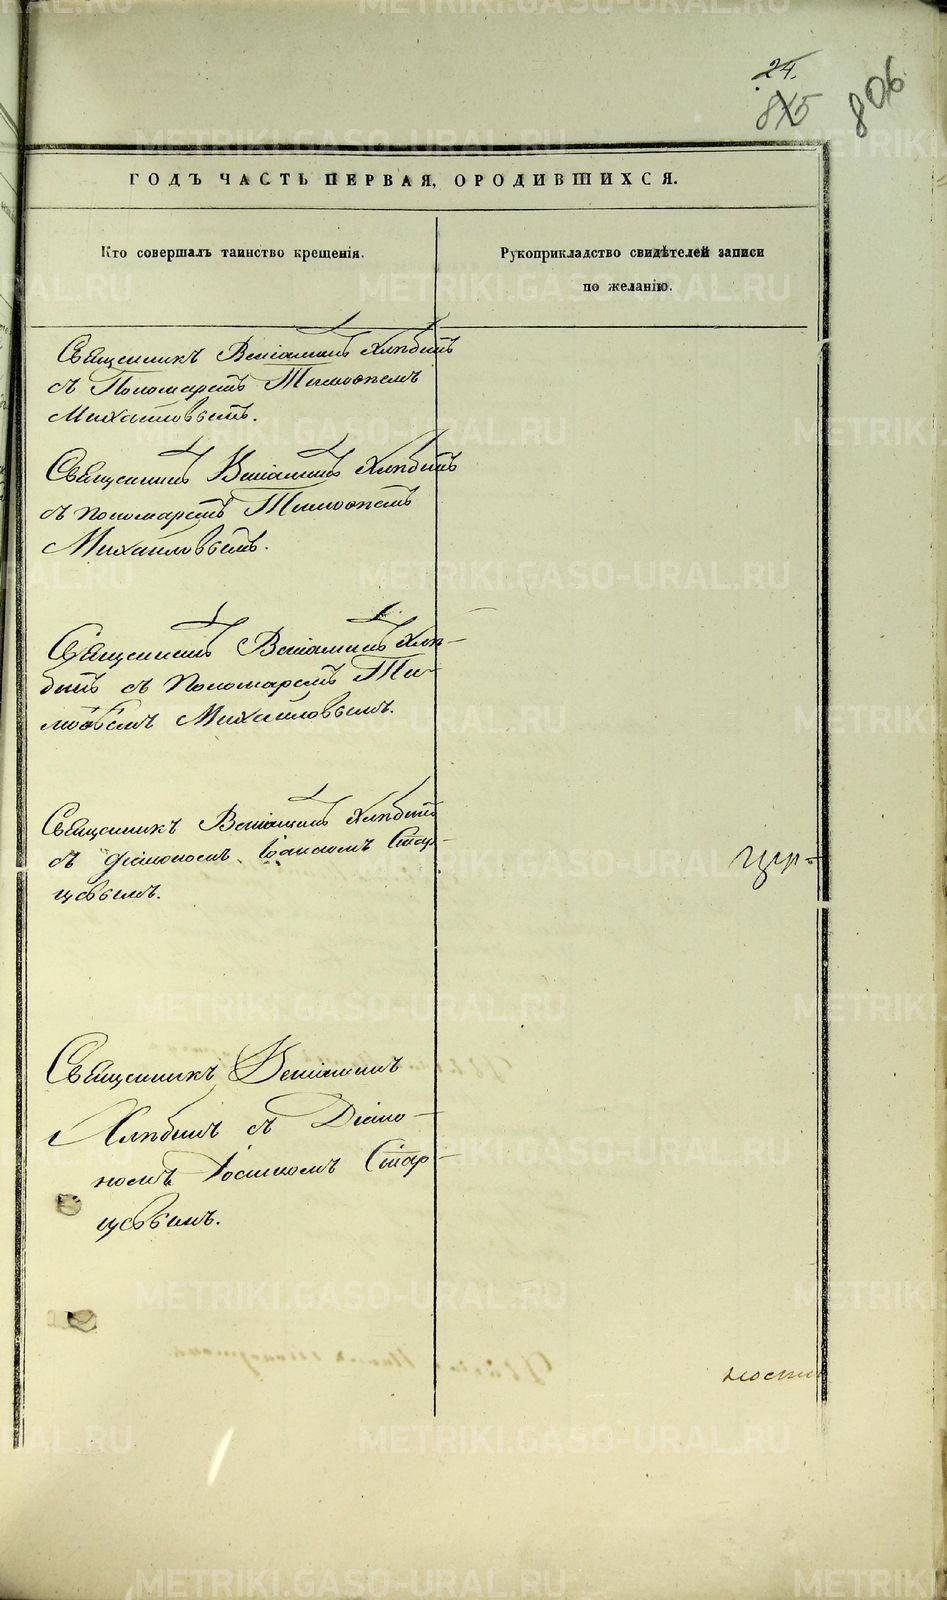 24.
815
806
ГОДЪ ЧАСТЬ ПЕРВАЯ, ОРОДИВШИХСЯ.
Кто совершалъ таинство крещенія.
Рукоприкладство свидѣтелей записи
по желанію.
Священникъ Веніаминъ Хлѣбинъ
съ Пономаремъ Тимоѳеемъ
Михайловымъ.
Священникъ Веніаминъ Хлѣбинъ
съ пономаремъ Тимоѳеемъ
Михайловымъ.
Священникъ Веніаминъ Хлѣ-
бинъ съ Пономаремъ Ти-
моѳеемъ Михайловымъ.
Священникъ Веніаминъ Хлѣбинъ
съ Діакономъ Іоанномъ Стар-
цовымъ.
Священникъ Веніаминъ
Хлѣбинъ съ Діако-
номъ Іоанномъ Стар-
цовымъ.
ности
METRIKI.GASO-URAL.RU